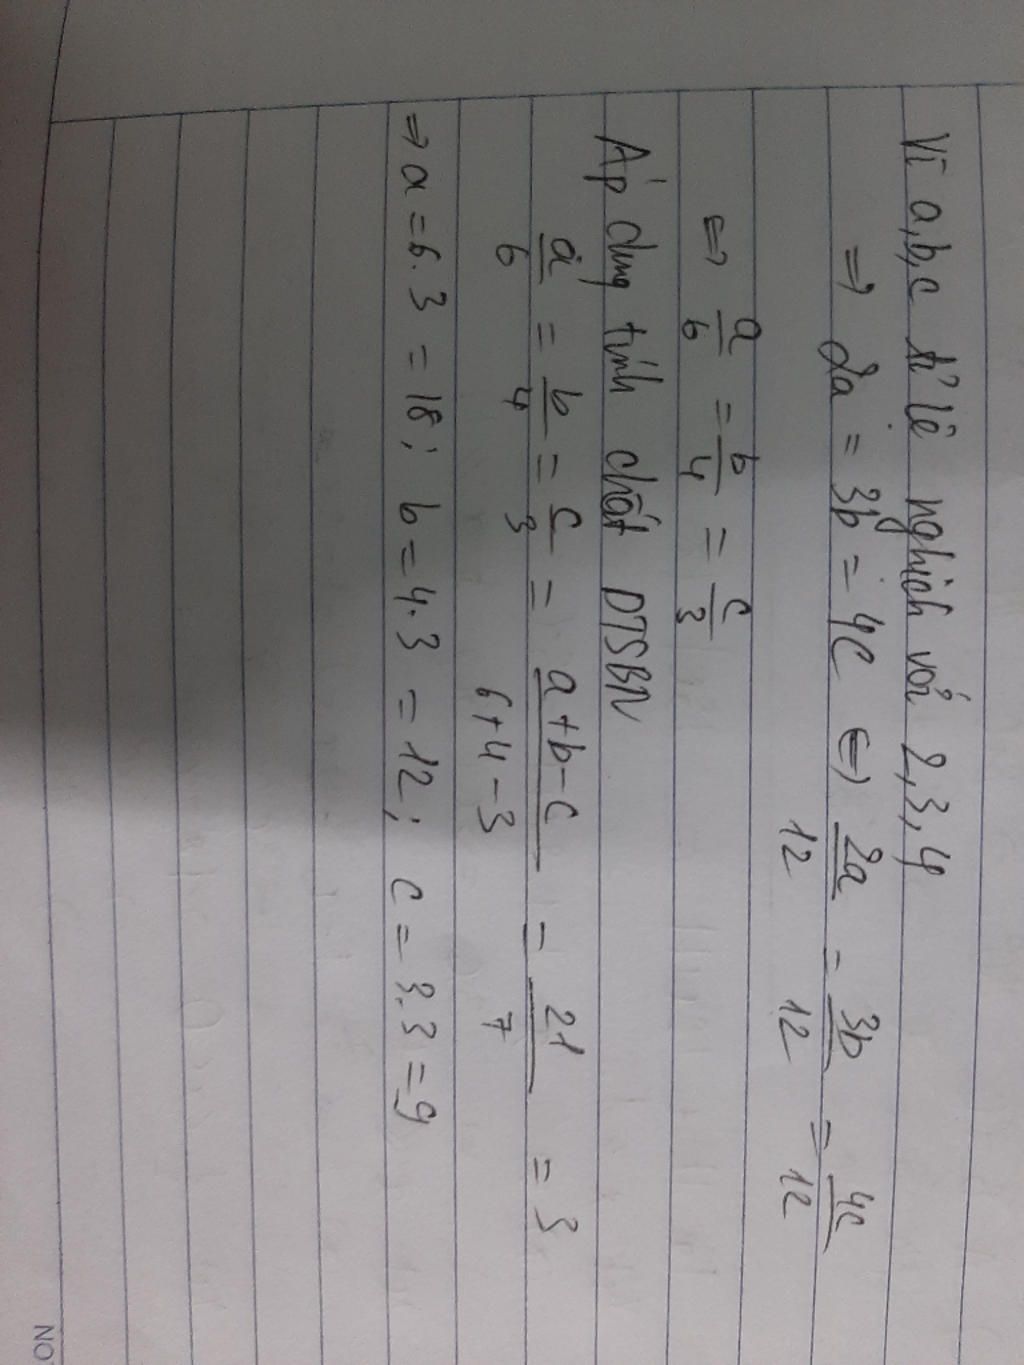 Vì a,b,c tỉ lệ nghịch với 2,3,4
⇒ 2a = 3b = 4c ⇔ 2a/12 = 3b/12 = 4c/12
⇔ a/6 = b/4 = c/3
Áp dụng tính chất DTSBN
a/6 = b/4 = c/3 = a+b-c/6+4-3 = 21/7 = 3
⇒ a = 6.3 = 18; b = 4.3 = 12; c = 3.3 = 9
NO